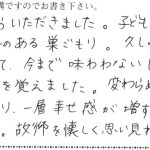 構ですのでお書き下さい。
らいただきました。子ども
のある巣ごもり。久し
て、今まで味わわない
を覚えました。変わらぬ
り、一層幸せ感が増す
。故郷を懐しく思い見れ